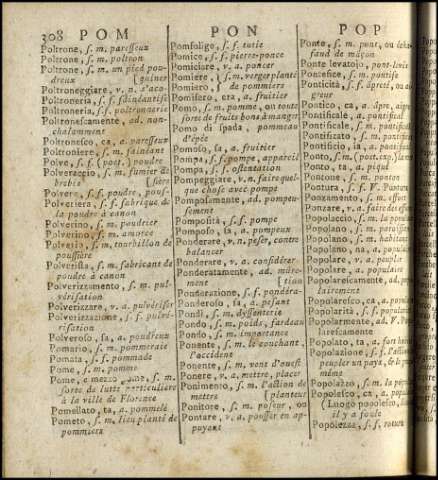 308 POM PON POP
Poltrone, s. m. paresseux
Poltrone, s. m. poltron
Poltrone, s. m. un pied pou-
dreux
Poltroneggiare, v. n. s'aco-
Poltroneria, s. f. fainéantise
Poltroneria, s. f. poltronerie
Poltronescamente, ad. non-
chalamment
Poltronesco, ca, a. paresseux
Poltroniere, s. m. faineant
Polve, s. f. (poet.) poudre
Polveraccio, s. m. fumier de
brebis
Polvere, s. f. poudre, pous-
Polveriera, s. f. fabrique de
la poudre à canon
Polverino, s. m. poudrier
Polverino, s. m. amorce
Polverio, s. m. tourbillon de
poussière
Polverista, s. m. fabricant de
poudre à canon
Polverizzamento, s. m. pul-
vérisation
Polverizzare, v. a. pulvériser
Polverizzazione, s. f. pulvé-
risation
Polveroso, sa, a. poudreux
Pomario, s. m. pommeraie
Pomata, s. f. pommade
Pome, s. m. pomme
Pome, a mezzo pome, s. m.
sorte de lutte particulière
à la ville de Florence
Pomellato, ta, a. pommelé
Pometo, s. m. lieu planté de
pommiers
Pomfoligo, s. f. tutie
Pomice, s. f. pierre-ponce
Pomiciare, v. a. poncer
Pomiere, s. m. verger planté
Pomiero, de pommiers
Pomifero, ra, a. fruitier
Pomo, s. m. pomme, ou toute
sorte de fruits bons à manger
Pomo di spada, pommeau
d'épée
Pomoso, sa, a. fruitier
Pompa, s. f. pompe, appareil
Pompa, s. f. ostentation
Pompeggiare, v. n. faire quel-
que chose avec pompe
Pomposamente, ad. pompeu-
sement
Pomposità, s. f. pompe
Pomposo, sa, a. pompeux
Ponderare, v. a. peser, contre
balancer
Ponderare, v. a. considérer
Ponderatamente, ad. mûre-
ment
Ponderazione, s. f. pondéra-
Ponderoso, sa, a. pesant
Pondi, s. m. dyssenterie
Pondo, s. m. poids, fardeau
Pondo, s. m. importance
Ponente, s. m. le couchant,
l'occident
Ponente, s. m. vent d'ouest
Ponere, v. a. mettre, placer
Ponimento, s. m. l'action de
mettre
Ponitore, s. m. poseur, ou
Pontare, v. a. pousser en ap-
puyant
Ponte, s. m. pont, ou écha-
faud de maçon
Ponte levatojo, pont-levis
Pontefice, s. m. pontife
Ponticità, s. f. âpreté, ou ai-
greur
Pontico, ca, a. âpre, aigre
Pontificale, a. pontifical
Pontificale, s. m. pontifical
Pontificato, s. m. pontificat
Pontificio, ia, a. pontifical
Ponto, s. m. (poet.)
Ponto, ta, a. piqué
Pontone, s. m. ponton
Pontura, s. f. V. Puntura
Ponzamento, s. m. effort
Ponzare, v. n. faire des efforts
Popolaccio, s. m. la populace
Popolano, s. m. paroissien
Popolano, s. m. habitant
Popolano, na, a. populaire
Popolare, v. a. peupler
Popolare, a. populaire
Popolarescamente, ad. popu-
lairement
Popolaresco, ca, a. populaire
Popolarità, s. f. popularité
Popolarmente, ad. V. Popo-
larescamente
Popolato, ta, a. fort habité
Popolazione, s. f. l'action de
peupler un pays, & le peuple
même
Popolazzo, s. m. la populace
Popolesco, ca, a. populaire
(Luogo popolesco) lieu où
il y a foule
Popolezza, s. f. roture